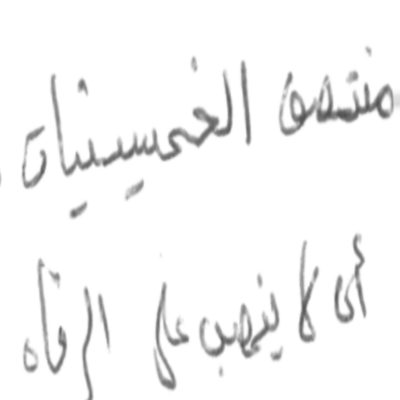 منتصف الخمسينيات
أي لا ينصب على الرفاه